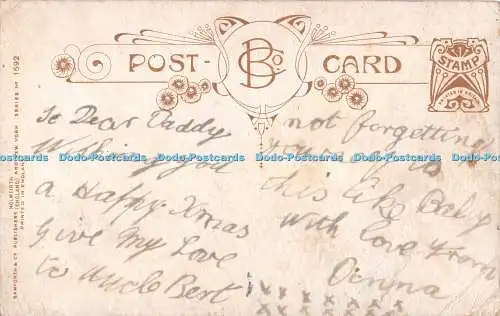 POST-
B Co.
CARD
STAMP
To Dear Daddy
Wishing you
a Happy Xmas
Give My Love
to Uncle Bert
not forgetting
this like Baby
with love from
x x x x x x x
x x x x x x
Dodo-Postcards Dodo-Postcards Dodo-Postcards Dodo-Postcards Dodo-Postcards
BAMFORTH & CO. PUBLISHERS
HOLMFIRTH (ENGLAND) AND NEW YORK
PRINTED IN ENGLAND
SERIES Nº 1592